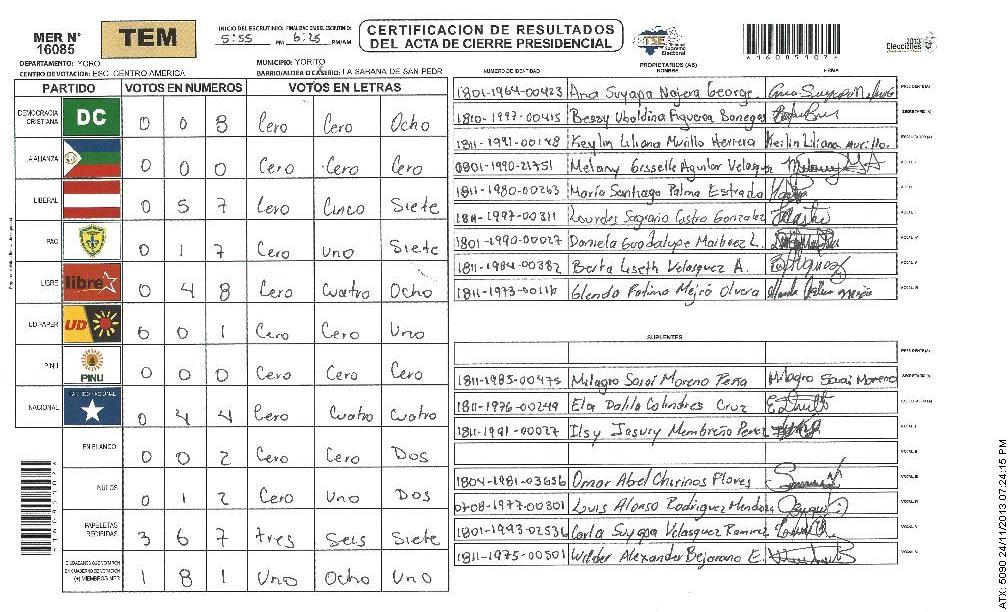 MER N° 16085
TEM
INICIO DEL ESCRUTINIO: 5:55 PM FINALIZACION DEL ESCRUTINIO: 6:25 PM/AM
CERTIFICACION DE RESULTADOS
DEL ACTA DE CIERRE PRESIDENCIAL
TSE Tribunal Supremo Electoral
2013 Elecciones
DEPARTAMENTO: YORO MUNICIPIO: YORITO
CENTRO DE VOTACION: ESC. CENTRO AMERICA BARRIO/ALDEA O CASERIO: LA SABANA DE SAN PEDR
PARTIDO VOTOS EN NUMEROS VOTOS EN LETRAS
DEMOCRACIA CRISTIANA DC 0 0 8 Cero Cero Ocho
ALIANZA 0 0 0 Cero Cero Cero
LIBERAL 0 5 7 Cero Cinco Siete
PAC 0 1 7 Cero Uno Siete
LIBRE libre 0 4 8 Cero Cuatro Ocho
UD-FAPER UD 0 0 1 Cero Cero Uno
PINU PINU 0 0 0 Cero Cero Cero
NACIONAL PARTIDO NACIONAL 0 4 4 Cero Cuatro Cuatro
EN BLANCO 0 0 2 Cero Cero Dos
NULOS 0 1 2 Cero Uno Dos
PAPELETAS RECIBIDAS 3 6 7 tres Seis Siete
CIUDADANOS QUE VOTARON EN CUADERNO DE VOTACION (+) MIEMBROS MER 1 8 1 Uno Ocho Uno
PROPIETARIOS (AS)
NUMERO DE IDENTIDAD NOMBRE FIRMA
1801-1964-00423 Ana Suyapa Najera George. PRESIDENTE(A)
1810-1997-00415 Bessy Ubaldina Figueroa Banegas SECRETARIO (A)
1811-1991-00148 Keylin Liliana Murillo Herrera Keilin Liliana Murillo. ESCRUTADOR (A)
0801-1990-21751 Melany Gesselle Aguilar Velasquez VOCAL I
1811-1980-00263 Maria Santiago Palma Estrada VOCAL II
1811-1997-00311 Lourdes Sagrario Castro Gonzalez VOCAL III
1801-1990-00027 Daniela Guadalupe Martinez L. VOCAL IV
1811-1984-00382 Berta Liseth Velasquez A. VOCAL V
1811-1973-00116 Glenda Fatima Mejia Olvera VOCAL VI
SUPLENTES
PRESIDENTE (A)
1811-1985-00475 Milagro Sarai Moreno Peña Milagro Sarai Moreno SECRETARIO (A)
1811-1976-00249 Elsa Dalila Colindres Cruz ESCRUTADOR (A)
1811-1991-00027 Ilsy Jasury Membreño Perez VOCAL I
VOCAL II
1804-1981-03656 Omar Abel Chirinos Flores VOCAL III
0708-1977-00301 Luis Alonso Rodriguez Mendoza VOCAL IV
1801-1993-02536 Carla Suyapa Velasquez Ramirez VOCAL V
1811-1975-00501 Wilder Alexander Bejarano E. VOCAL VI
ATX: 5090 24/11/2013 07:24:15 PM